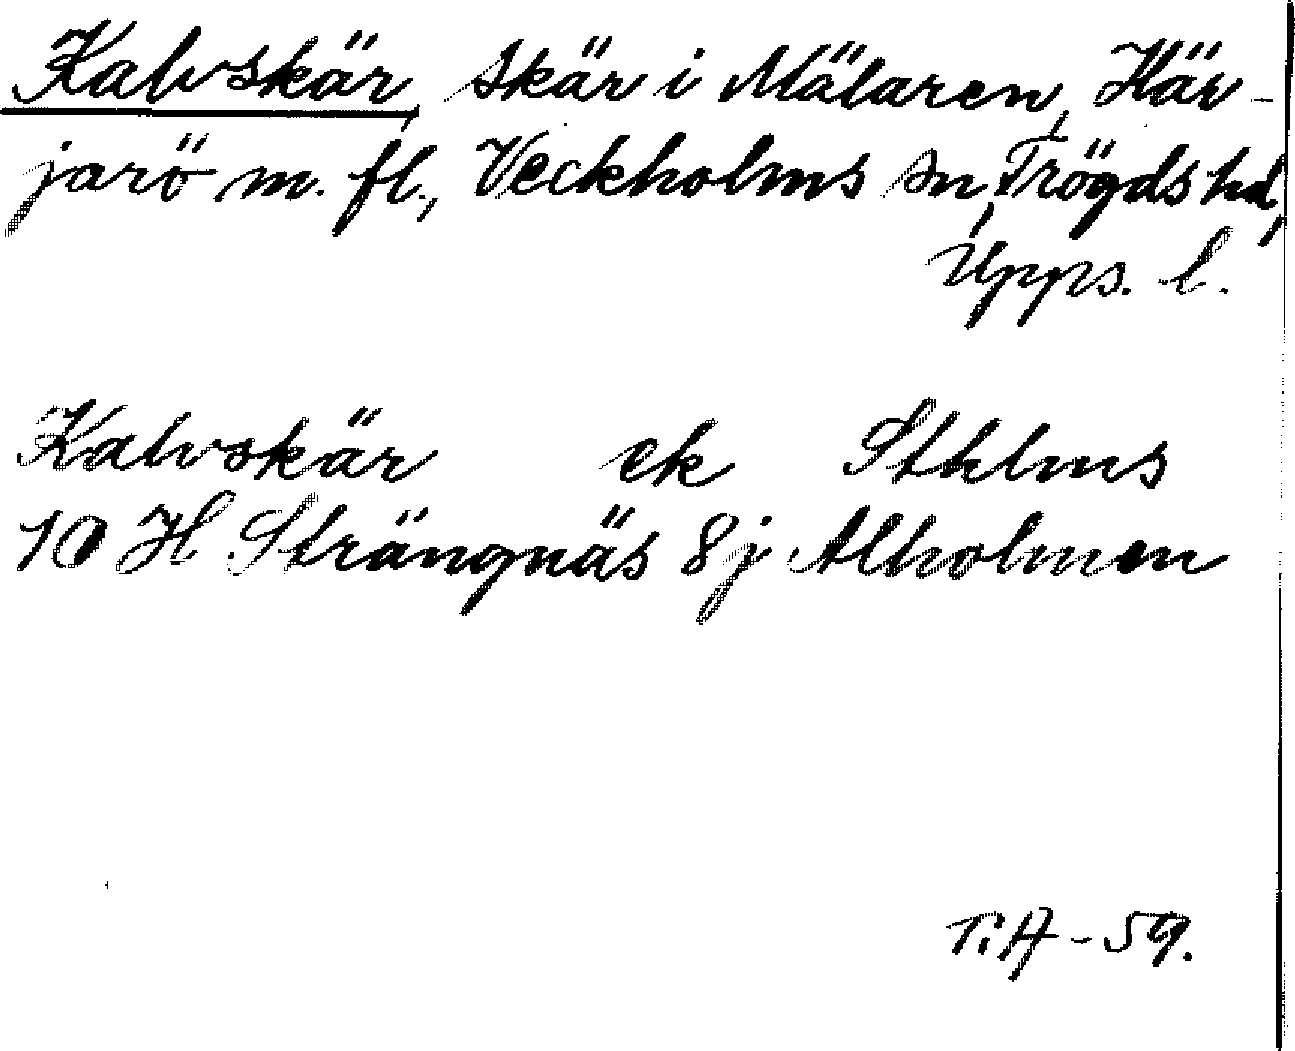 Kalvskär, skär i Mälaren, Här-
jarö m. fl., Veckholms sn, Trögds hd,
Upps. l.
Kalvskär ek Sthlms
10 H Strängnäs 8j Alholmen
T:A-59.